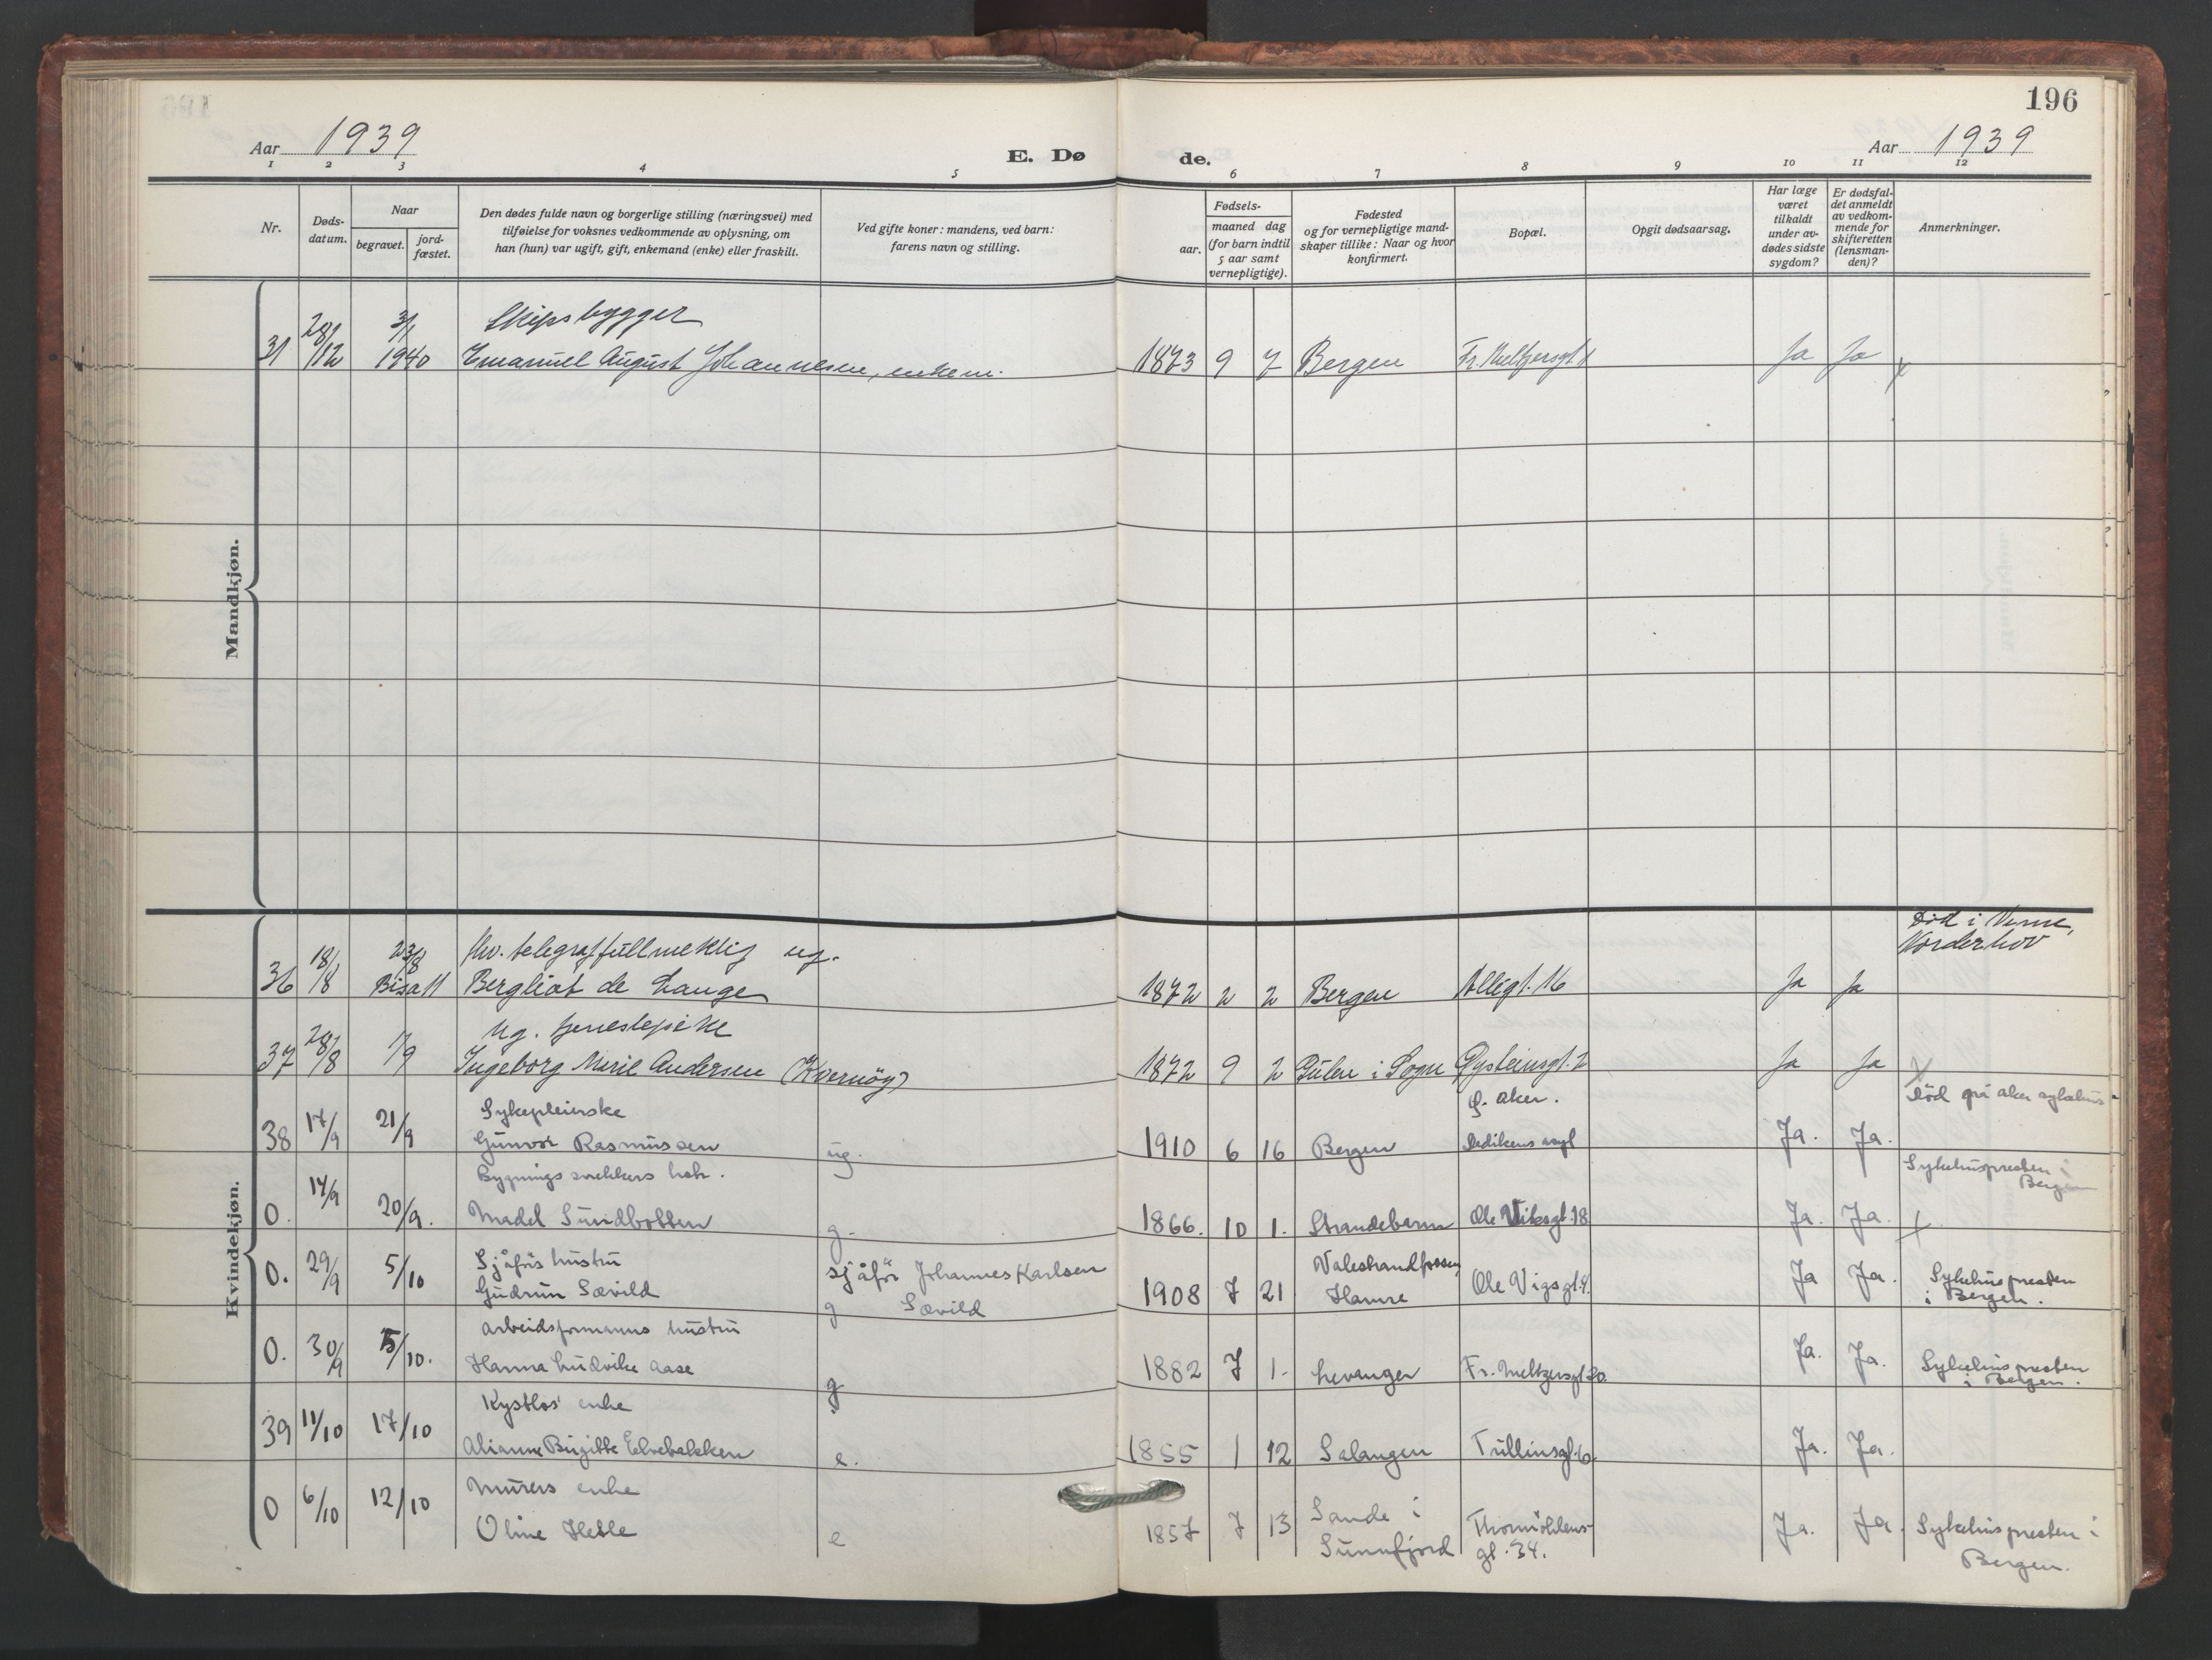 196
Aar 1939
E. Dø
de.
Aar 1939
1 2 3 4 5 6 7 8 9 10 11 12
Nr.
Døds-
datum.
Naar
begravet.
jord-
fæstet.
Den dødes fulde navn og borgerlige stilling (næringsvei) med
tilføielse for voksnes vedkommende av oplysning, om
han (hun) var ugift, gift, enkemand (enke) eller fraskilt.
Ved gifte koner: mandens, ved barn:
farens navn og stilling.
aar.
Fødsels-
maaned dag
(for barn indtil
5 aar samt
vernepligtige).
Fødested
og for vernepligtige mand-
skaper tillike: Naar og hvor
konfirmert.
Bopæl.
Opgit dødsaarsag.
Har læge
været
tilkaldt
under av-
dødes sidste
sygdom?
Er dødsfal-
det anmeldt
av vedkom-
mende for
skifteretten
(lensman-
den)?
Anmerkninger.
Mandkjøn.
Skipsbygger
31 28/12 3/1 1940 Emanuel August Johannesen, enkem. 1873 9 7 Bergen Fr. Meltzersgt. Ja Ja x
Kvindekjøn.
Død i
Norderhov
fhv. telegraffullmektig ug.
36 18/8 23/8 Bisatt Bergliot de Lange 1872 2 2 Bergen Allégt. 16 Ja Ja
Ug. tjenestepike
37 28/8 1/9 Ingeborg Marie Andersen (Kvernøy) 1872 9 2 Gulen i Sogn Øysteinsgt. 2 Ja Ja x
Sykepleierske
Aker.
Död på Aker sykehus
38 17/9 21/9 Gunvor Rasmussen ug. 1910 6 16 Bergen Ja. Ja.
Bygnings snekkers hstr.
Sykehuspresten i
Bergen
0. 14/9 20/9. Madel Sundbotten g. 1866. 10 1. Strandebarm Ole Viksgt. 18 Ja. Ja. +
Sjåførs hustru
sjåför Johannes Karlsen
Valestrandfossen
0. 29/9 5/10 Gudrun Sævild g Sævild 1908 7 21 Hamre Ole Vigsgt. 9. Ja Ja. Sykehuspresten
i Bergen.
Arbeidsformanns hustru
0. 30/9 5/10. Hanna Ludvike Aase g. 1882 7 1. Levanger Fr. Meltzersgt 20. Ja. Ja. Sykehuspresten
i Bergen.
enke
39 11/10 17/10 Alianne Birgitte Elvebakken e. 1855 1 12 Salangen Tullinsgt. 6. Ja. Ja.
Murers enke
0 6/10 12/10 Oline Hetle e 1857 7 13 Sande i
Sunnfjord
Thormöhlens-
gt. 34.
Ja. Ja. Sykehuspresten i
Bergen.